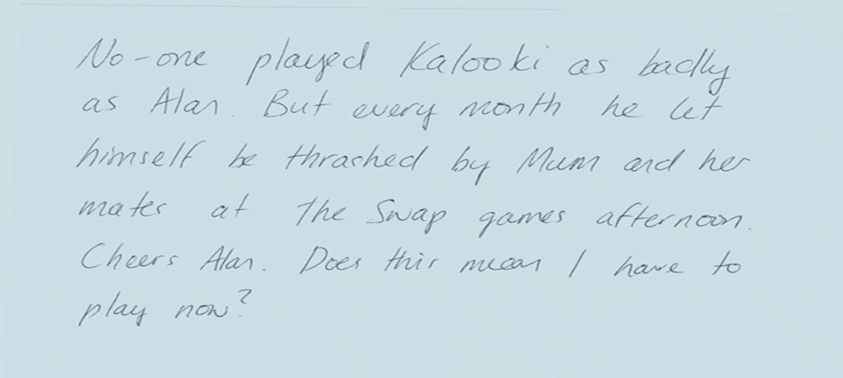 No-one played Kalooki as badly
as Alan. But every month he let
himself be thrashed by Mum and her
mates at the Swap games afternoon.
Cheers Alan. Does this mean I have to
play now?